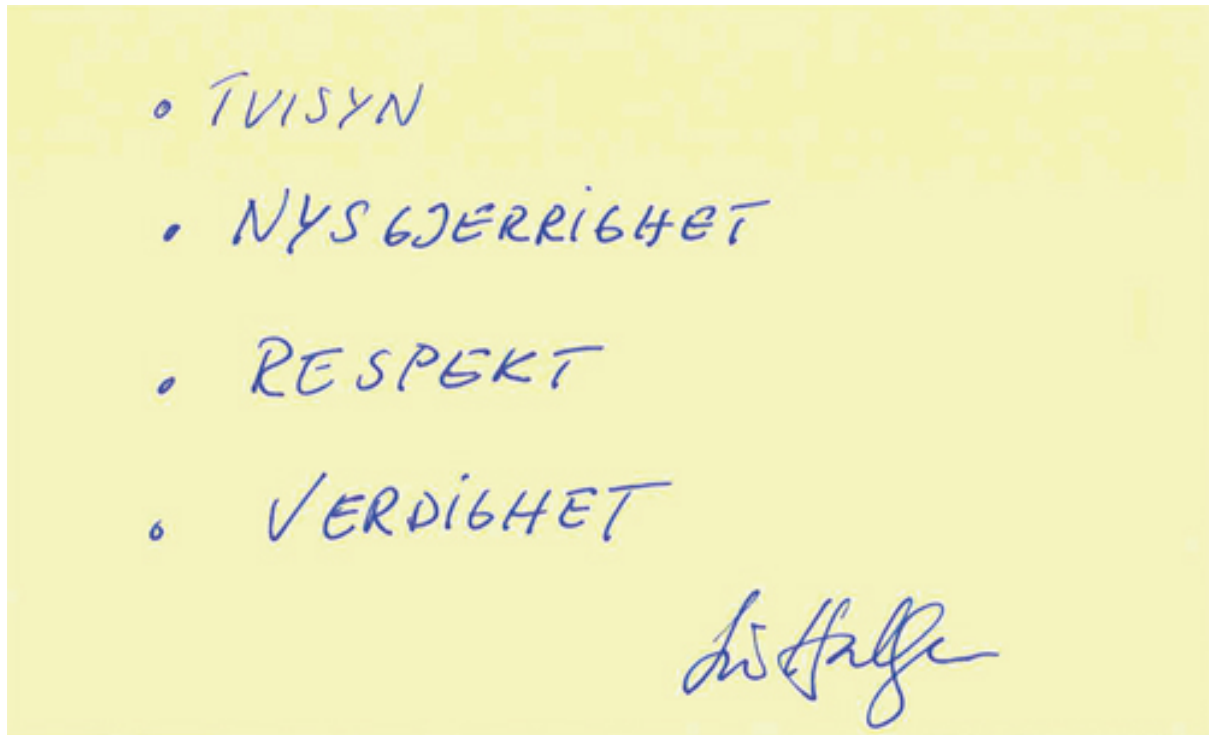 • TVISYN
• NYSGJERRIGHET
• RESPEKT
• VERDIGHET